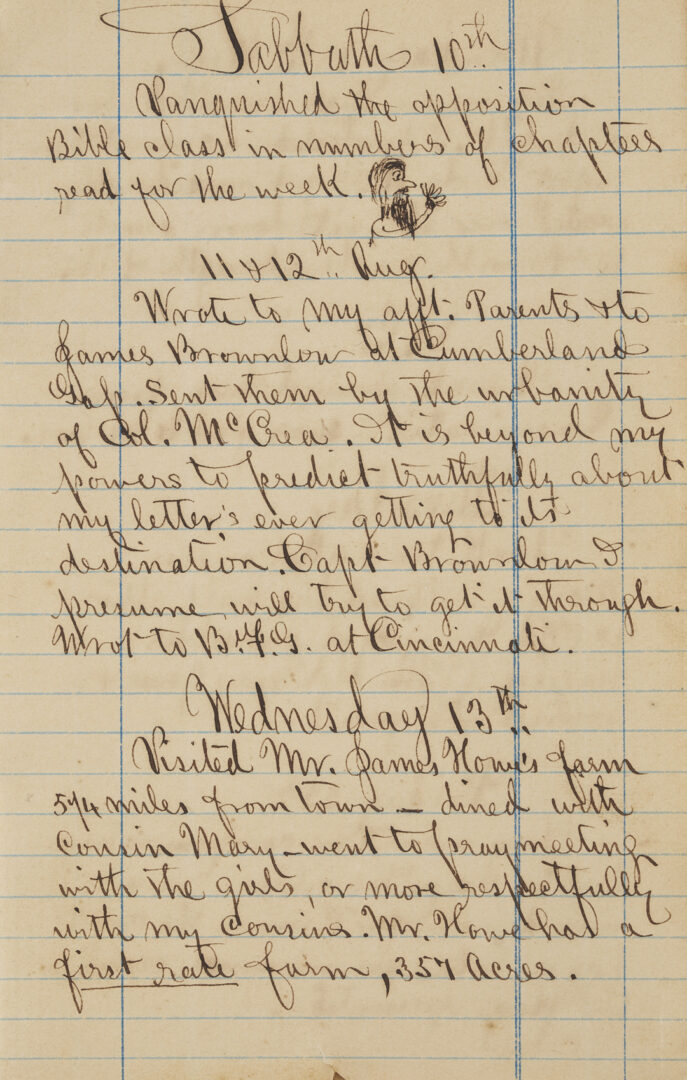 Sabbath 10th
Vanquished the opposition
Bible class in numbers of chapters
read for the week.
11 & 12th Aug.
Wrote to my afft. Parents & to
James Brownlow at Cumberland
Gap. Sent them by the urbanity
of Col. McCrea. It is beyond my
powers to predict truthfully about
my letter's ever getting to its
destination. Capt Brownlow I
presume will try to get it through.
Wrot to B.F.G. at Cincinnati.
Wednesday 13th
Visited Mr. James Howe's farm
5 1/4 miles from town – dined with
Cousin Mary – went to praymeeting
with the girls, or more respectfully
with my cousins. Mr. Howe has a
first rate farm, 357 Acres.